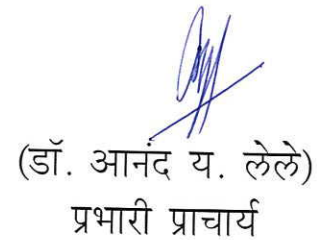 (डॉ. आनंद य. लेले)
प्रभारी प्राचार्य